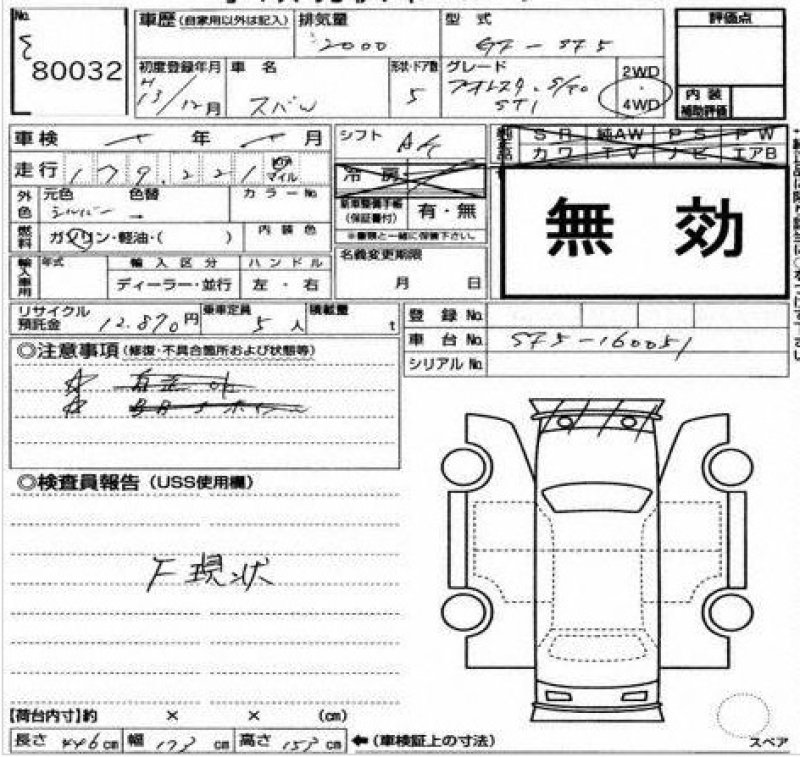 No.
80032
車歴 (自家用以外は記入) 排気量 2000 型式 GF - SF5
評価点
初度登録年月 H13/12月 車名 スバル 形状・ドア数 5 グレード フォレスター S/T0 STI 2WD ・ 4WD
内装補助評価
車検 年 月 シフト 純正品 SR 純AW PS PW
カワ TV ナビ エアB
走行 179,221 km マイル 冷房
外色 元色 シルバー 色替 → カラーNo.
新車整備手帳(保証書付) 有・無
※書類と一緒に保管下さい。
無効
燃料 ガソリン・軽油・( ) 内装色
輸入車用 年式 輸入区分 ハンドル 名義変更期限
ディーラー・並行 左・右 月 日
リサイクル預託金 12,870円 乗車定員 5人 積載量 t
登録No.
車台No. SF5-160051
シリアルNo.
◎注意事項 (修復・不具合箇所および状態等)
◎検査員報告 (USS使用欄)
F現状
【荷台内寸】約 × × (cm)
長さ 446cm 幅 173cm 高さ 153cm ←(車検証上の寸法)
スペア